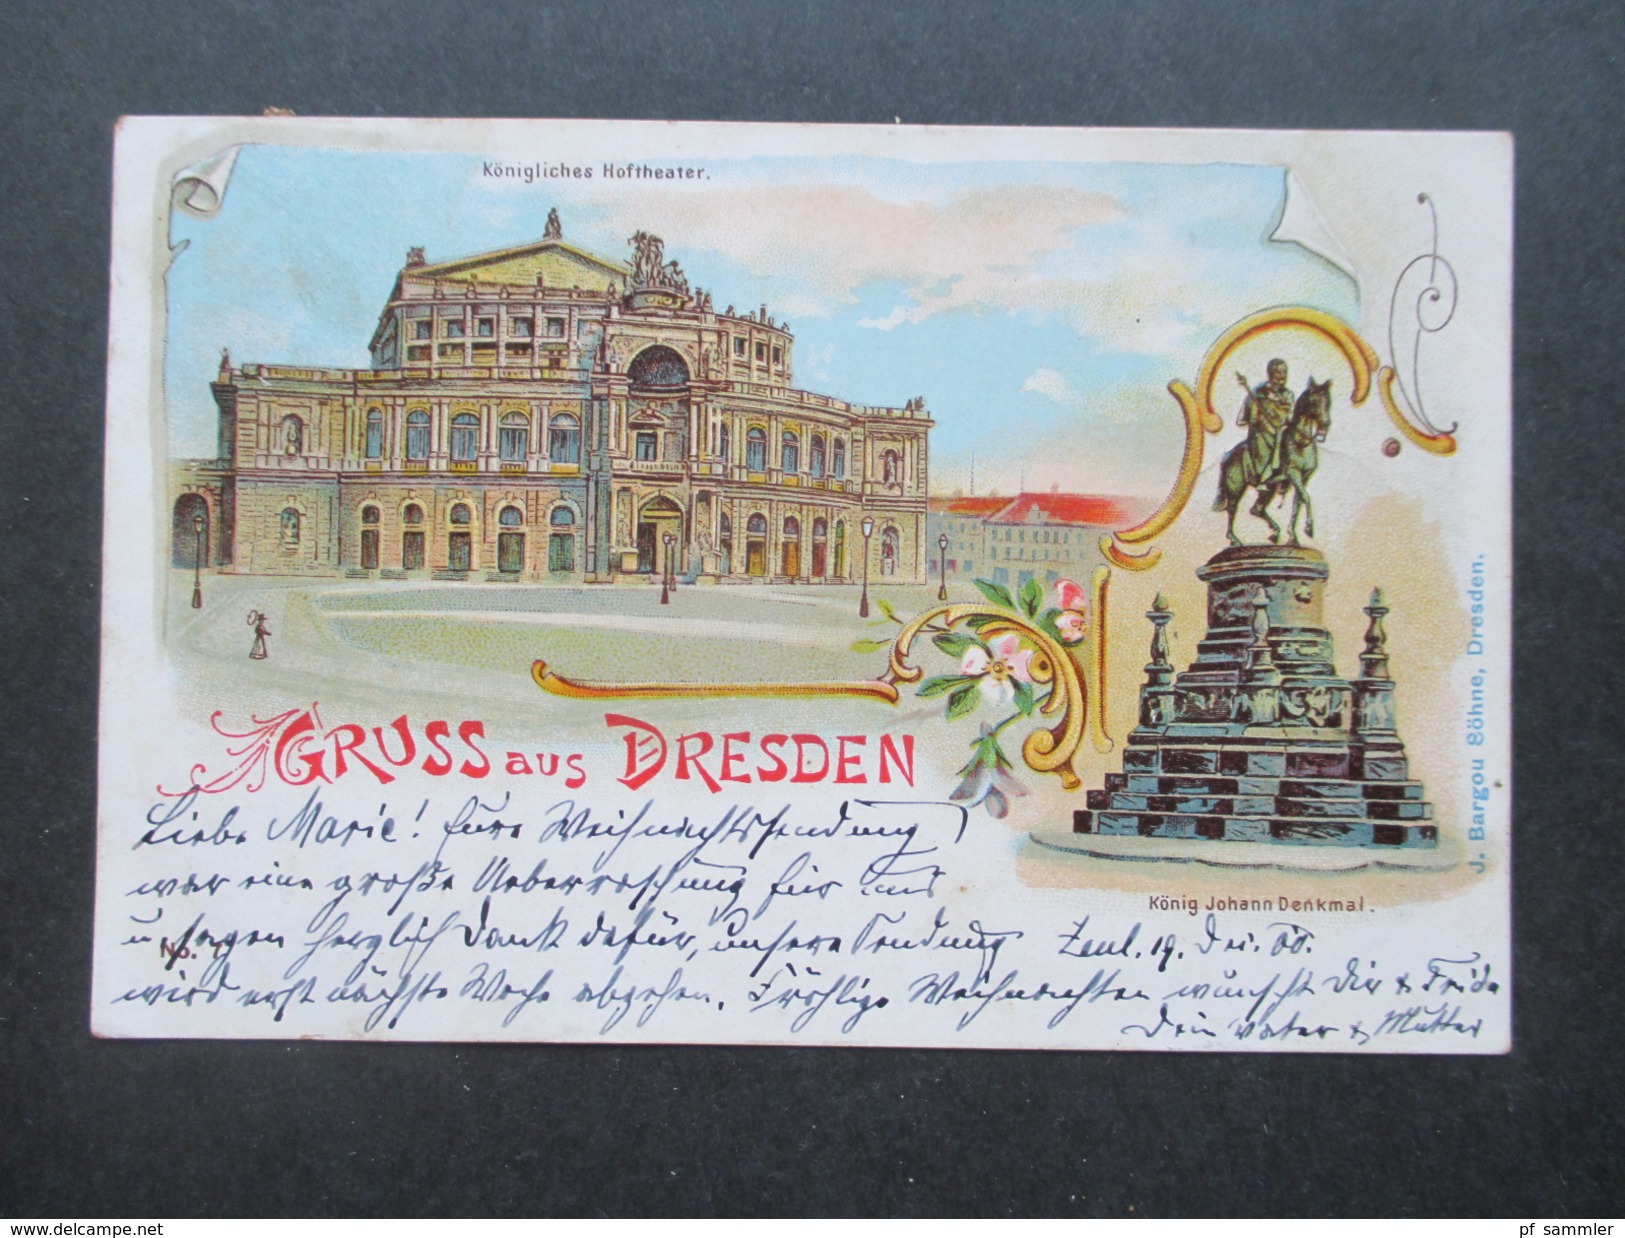 Königliches Hoftheater.
GRUSS aus DRESDEN
König Johann Denkmal.
J. Bargou Söhne, Dresden.
No.
Liebe Marie! Eure Weihnachtssendung
war eine große Ueberraschung für uns
u. sagen herzlich Dank dafür, unsere Sendung
wird erst nächste Woche abgehen. Fröhliche Weihnachten wünscht Dir & Frida
Dein Vater & Mutter
19. Dez. 00.
www.delcampe.net
pf_sammler